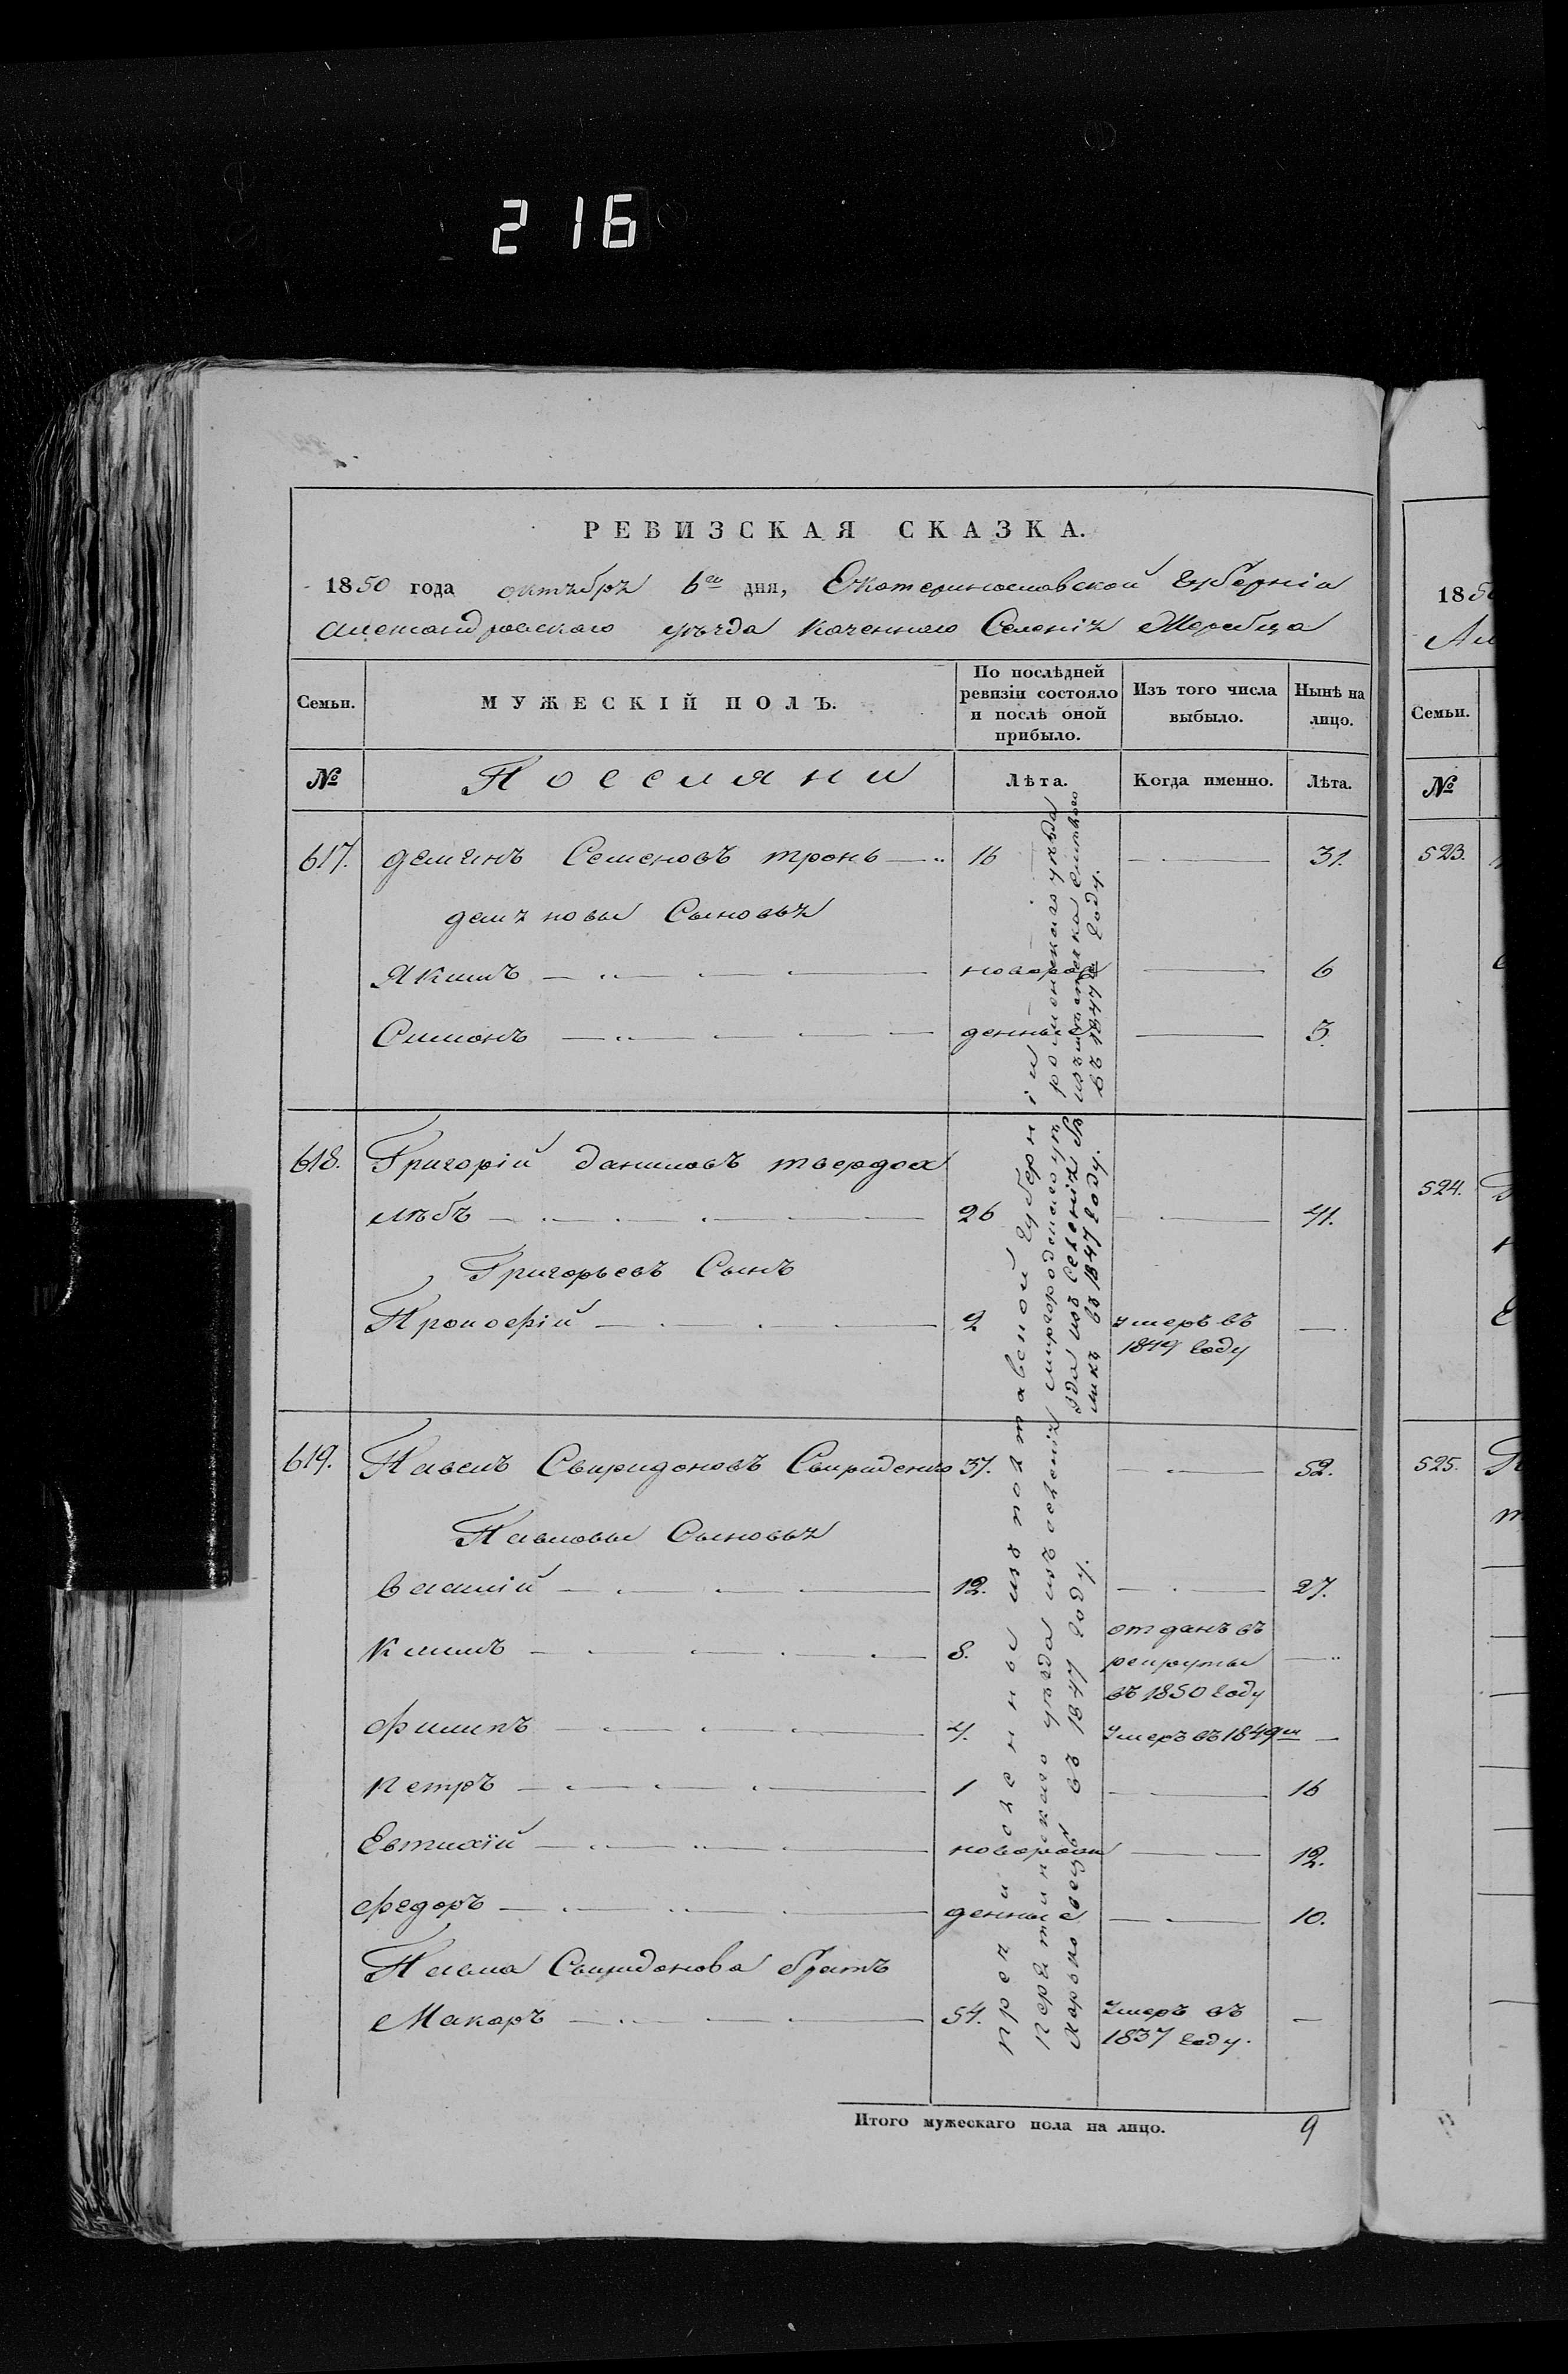 216
РЕВИЗСКАЯ СКАЗКА.
1850 года октября 6го дня, Екатеринославской Губерніи
Александровскаго уѣзда Казеннаго Селенія Жеребца
Семьи. МУЖЕСКІЙ ПОЛЪ. По послѣдней ревизіи состояло и послѣ оной прибыло. Изъ того числа выбыло. Нынѣ на лицо.
№ Поселяни Лѣта. Когда именно. Лѣта.
617. Демянъ Семеновъ Тронь 16 31.
Демяновы Сыновья
Якимъ новорож 6
Симонъ денные 3.
618. Григорій Даниловъ Твердох
лѣбъ 26 41.
Григорьевъ Сынъ
Прокофій 9 умеръ въ
1849 году
619. Павелъ Свиридоновъ Свириденко 37. 52.
Павловы Сыновья
Василій 12. 27.
Климъ 8. отданъ въ
рекруты
въ 1850 году
Филипъ 4. умеръ въ 1849м
Петръ 1 16
Евтихій новорож 12.
Федоръ денные 10.
Павла Свиридонова братъ
Макаръ 54. умеръ въ
1837 году.
Причисленные изъ полтавской губерніи
роменскаго уѣзда
изъ мѣстечка
въ 1847 году.
миргородскаго уѣ
зда изъ селенія
въ 1847 году.
уѣзда изъ селенія
въ 1847 году.
Итого мужескаго пола на лицо. 9
1850
Ал
Семьи.
№
523.
524.
525.